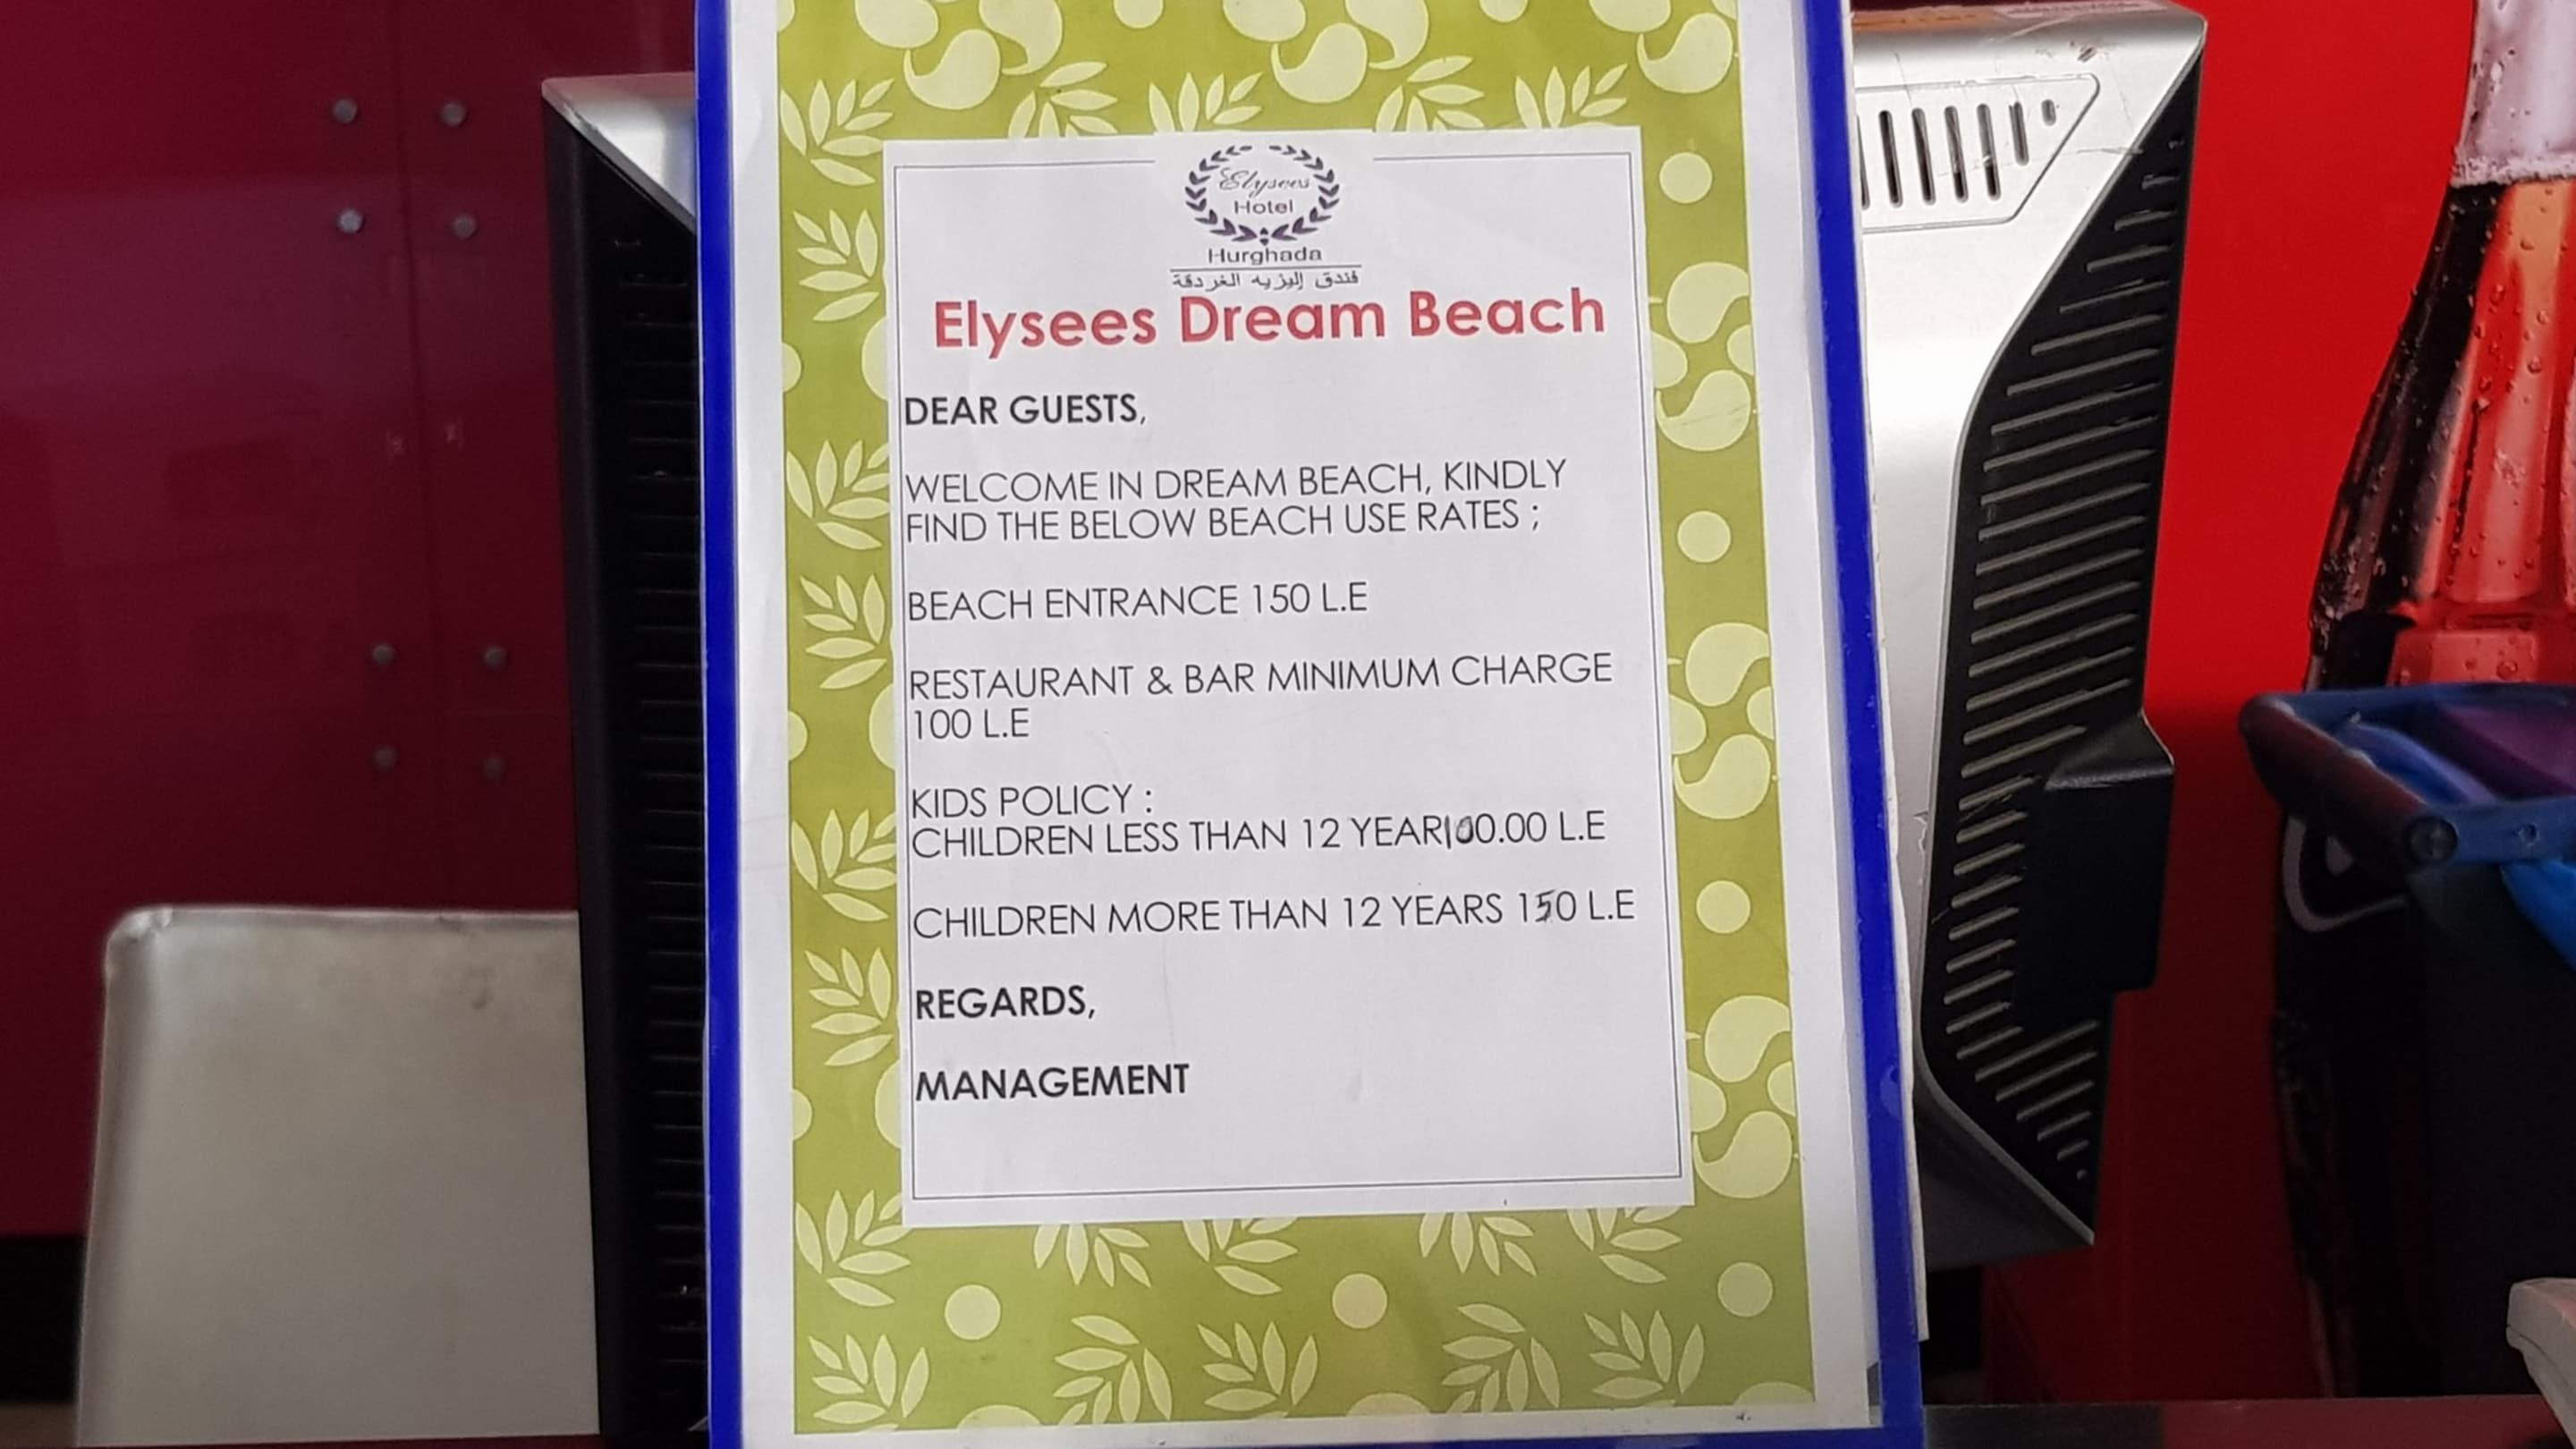 Elysees
Hotel
Hurghada
فندق إليزيه الغردقة
Elysees Dream Beach
DEAR GUESTS,
WELCOME IN DREAM BEACH, KINDLY
FIND THE BELOW BEACH USE RATES ;
BEACH ENTRANCE 150 L.E
RESTAURANT & BAR MINIMUM CHARGE
100 L.E
KIDS POLICY :
CHILDREN LESS THAN 12 YEAR100.00 L.E
CHILDREN MORE THAN 12 YEARS 150 L.E
REGARDS,
MANAGEMENT